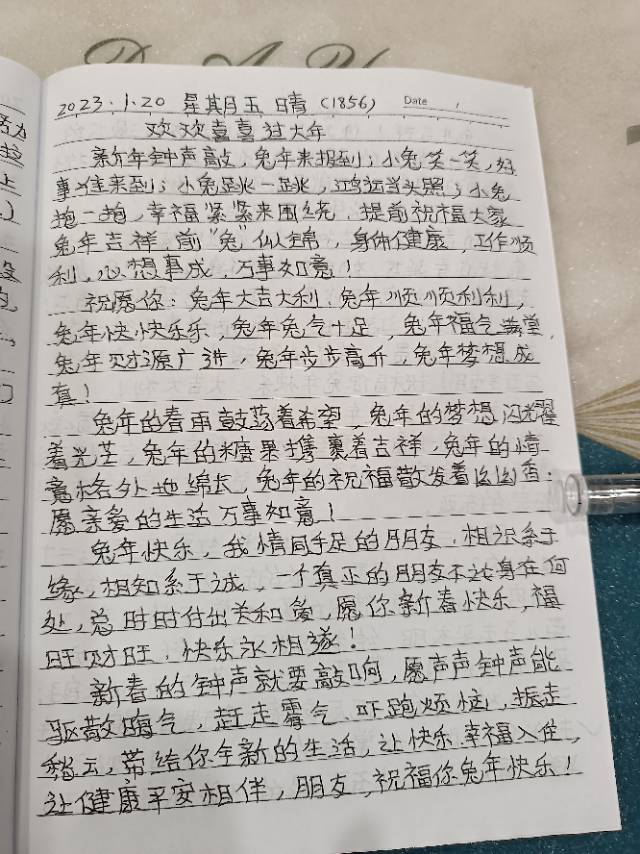 2023.1.20 星期五 晴 (1856) Date
欢欢喜喜过大年
新年钟声敲，兔年来报到；小兔笑一笑，好
事准来到；小兔跳一跳，鸿运当头照；小兔
抱一抱，幸福紧紧来围绕．提前祝福大家
兔年吉祥，前“兔”似锦，身体健康，工作顺
利，心想事成，万事如意！
祝愿你：兔年大吉大利．兔年顺顺利利，
兔年快快乐乐，兔年兔气十足，兔年福气满堂，
兔年财源广进，兔年步步高升，兔年梦想成
真！
兔年的春雨鼓荡着希望，兔年的梦想闪耀
着光芒，兔年的糖果携裹着吉祥，兔年的情
意格外地绵长，兔年的祝福散发着幽幽香：
愿亲爱的生活万事如意！
兔年快乐，我情同手足的朋友．相识系于
缘，相知系于诚，一个真正的朋友不论身在何
处，总时时付出关和爱，愿你新春快乐，福
旺财旺．快乐永相随！
新春的钟声就要敲响，愿声声钟声能
驱散晦气，赶走霉气．吓跑烦恼，振走
愁云，带给你全新的生活，让快乐．幸福入住，
让健康平安相伴，朋友，祝福你兔年快乐！